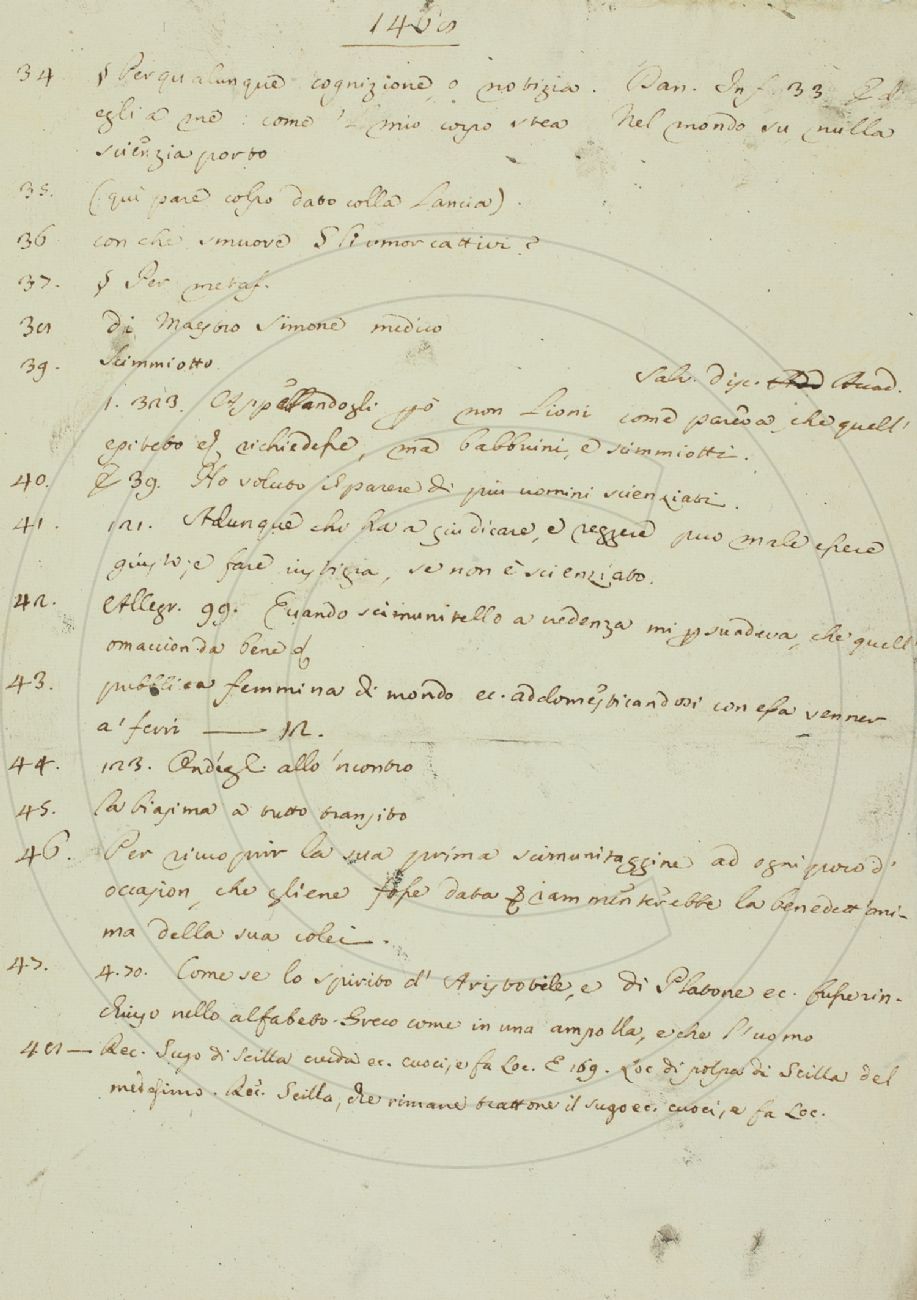 34 § Per qualunque cognizione, o notizia. Dan. Inf. 33 Ed
egli a me: come 'l mio corpo stea Nel mondo su, nulla
scienzia porto
35. (: qui pare colpo dato colla Lancia)
36 con che smuove gli umor cattivi?
37. § Per metaf.
38 di Maestro Simone medico
39. Scimmiotto. Salv. disc. Accad.
1. 323. Appellandogli però non Lioni come pareva, che quell'
epiteto richiedesse, ma babbuini, e scimmiotti.
40. E 39. Ho voluto il parere di più uomini scienziati.
41. 121. Adunque chi ha a giudicare, e reggere può male essere
giusto, e fare iustizia, se non è scienziato.
42. Allegr. 99. Quando scimunitello a credenza mi persuadeva, che quell'
omaccion da bene
43. pubblica femmina di mondo ec. addomesticandosi con essa venner
a' ferri —— 12.
44. 123. Ond' egli allo 'ncontro
45. la biasima a tutto transito
46. Per ricoprir la sua prima scimunitaggine ad ogni puro d'
occasion, che gliene fosse data rammenterebbe la benedett'ani-
ma della sua colei.
47. 4. 70. Come se lo spirito d'Aristotile, e di Platone ec. fusse rin-
chiuso nello alfabeto Greco come in una ampolla, e che l'uomo
48 — Rec. Sugo di Scilla cruda ec. cuoci, e fa Loc. E 169. Loc di polpa di Scilla del
medesimo. Rec. Scilla, che rimane trattone il sugo ec. cuoci, e fa Loc.